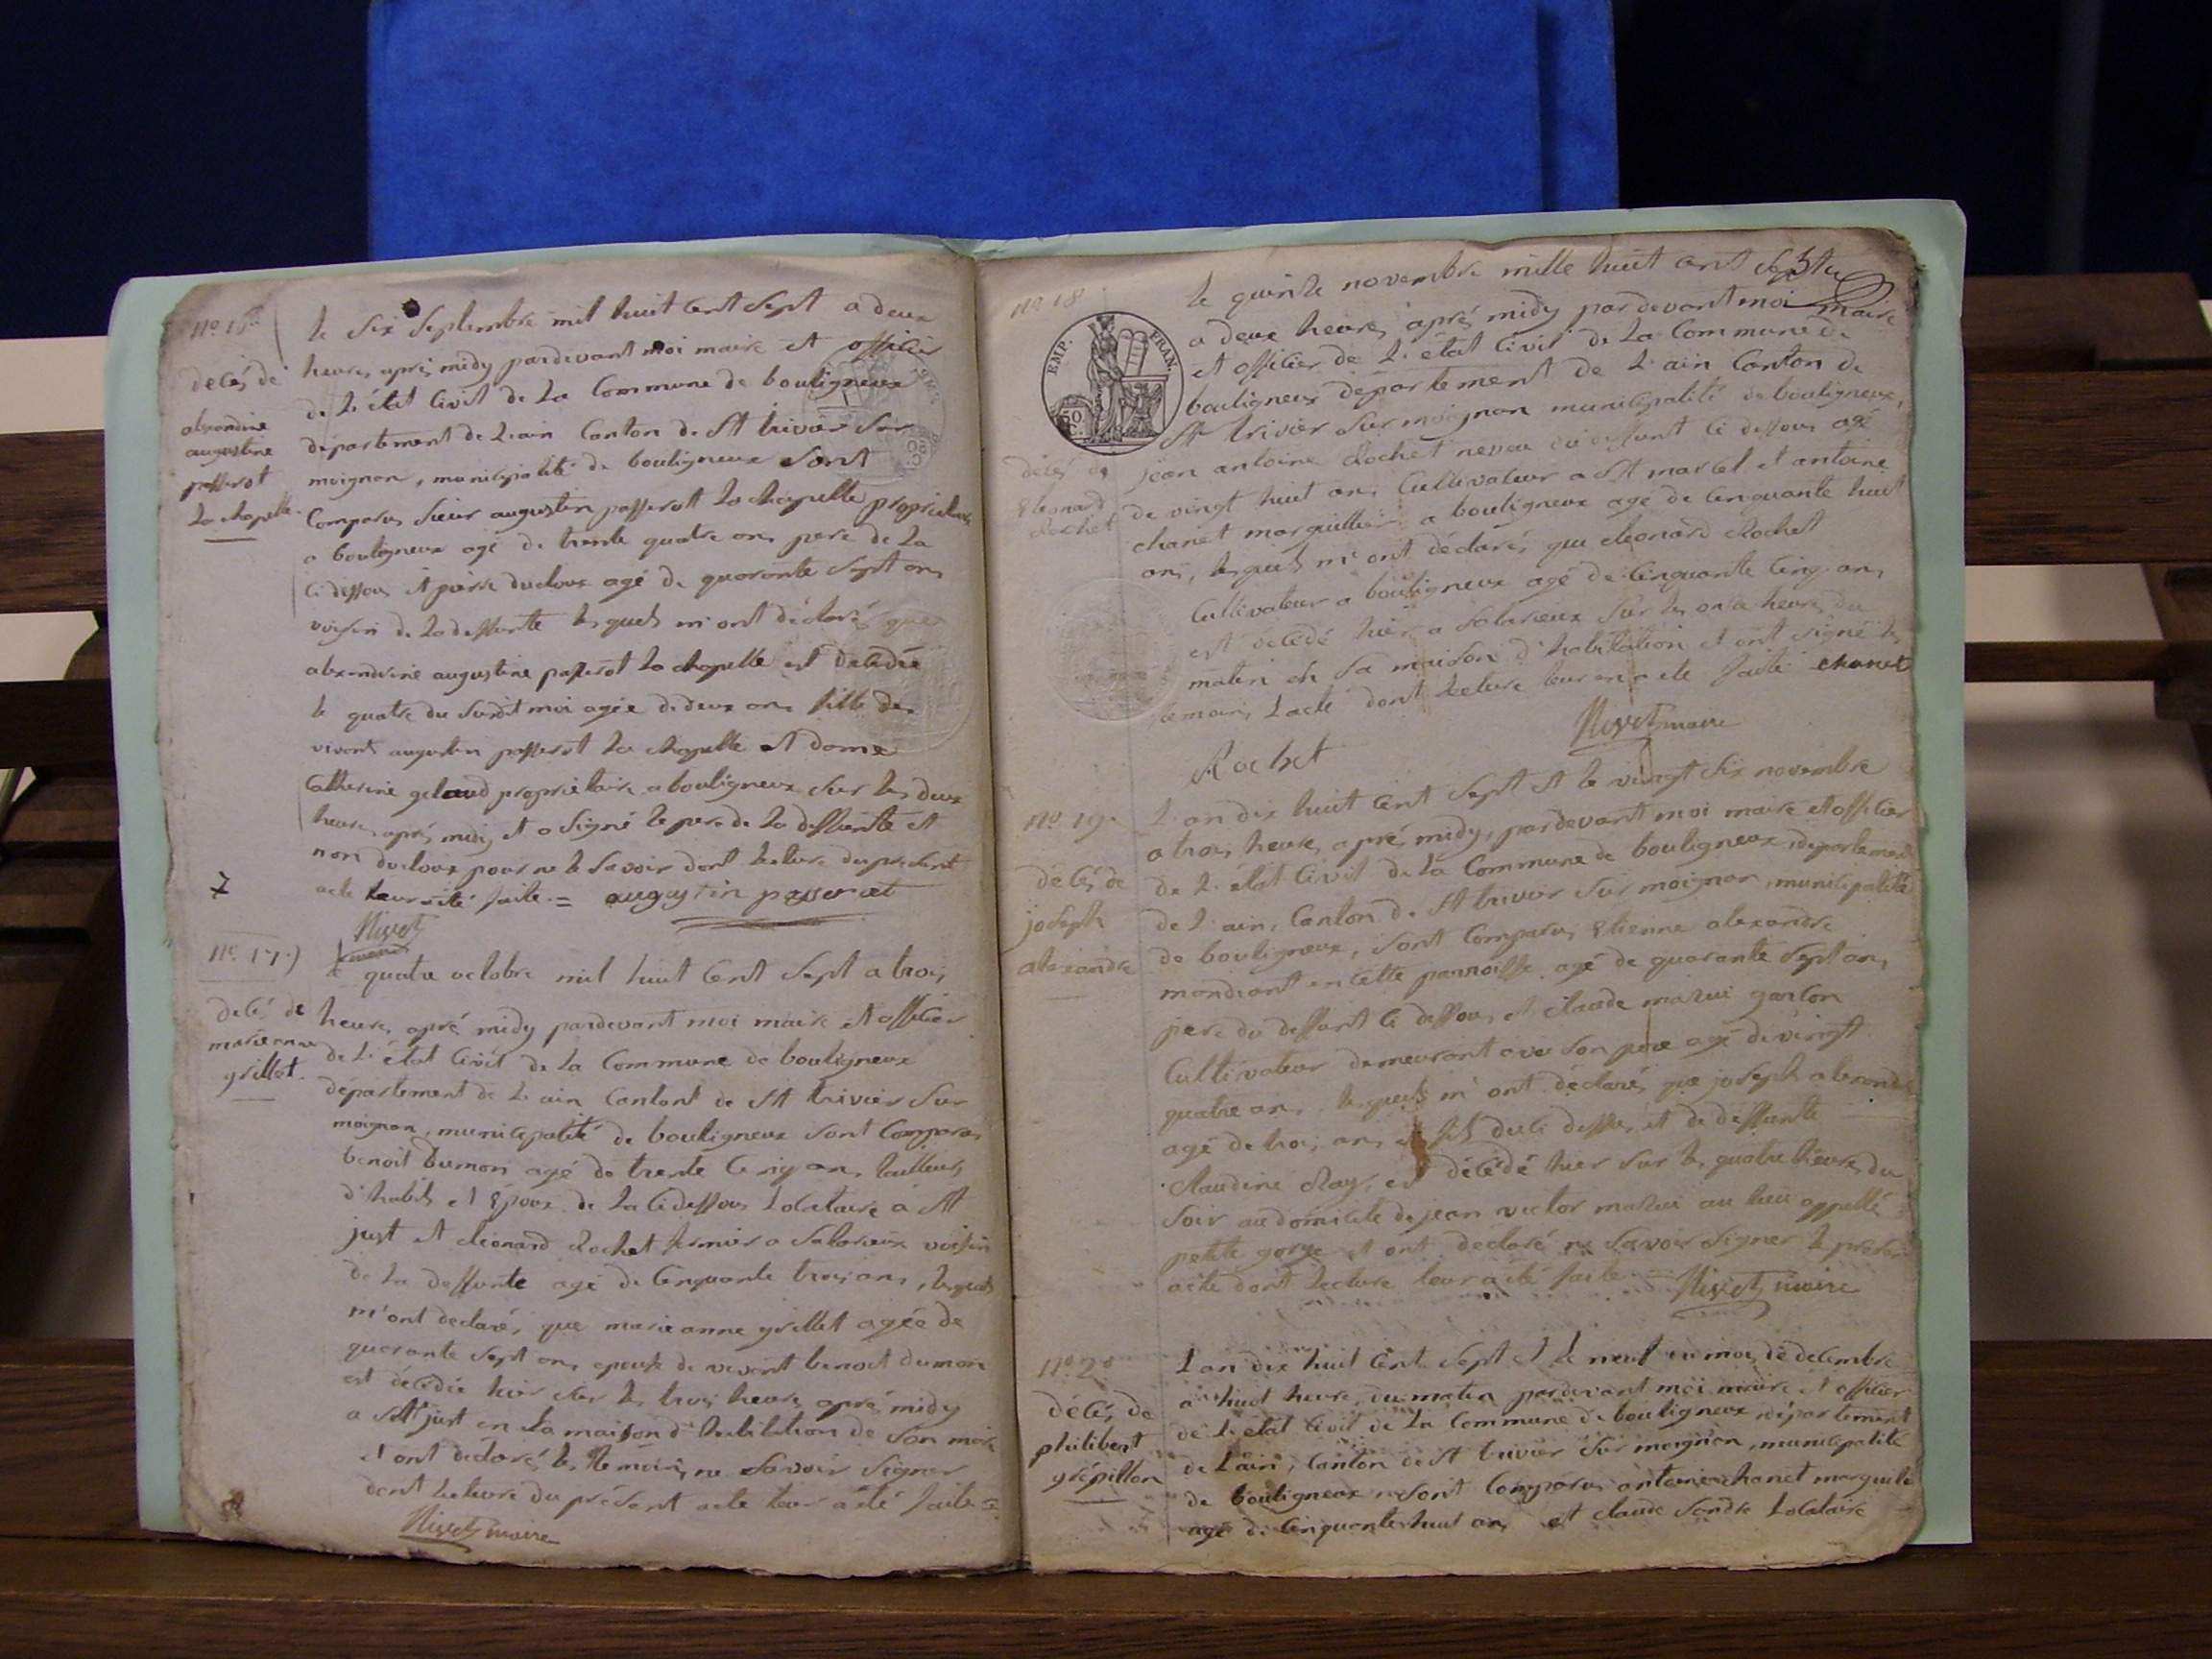 No. 16.
décés de
alexandrine
augustine
passerot
la chapelle.
le six septembre mil huit cent sept a deux
heures aprés midy pardevant moi maire et officier
de l'état civil de la Commune de bouligneux
département de l'ain Canton de St trivier sur
moignan, municipalité de bouligneux sont
Comparus sieur augustin passerott la chapelle proprietaire
a bouligneux agé de trente quatre ans pere de la
ci dessous et pierre ducloux agé de quarante sept ans
voisin de la deffunte lesquels m'ont déclarés que
alexandrine augustine passerot la chapelle est décédée
le quatre du susdit moi agée de deux ans fille de
vivant augustin passerot la chapelle et dame
Catherine proprietaire a bouligneux sur les deux
heures aprés midy et a signé le pere de la deffunte et
non ducloux pour ne le savoir dont lecture du present
acte leur a été faite = augustin passerat
Nivet
maire
No. 17.
décé de
marie anne
grillet.
le quatre octobre mil huit cent sept a trois
heures aprés midy pardevant moi maire et officier
de l'état civil de la Commune de bouligneux
département de l'ain Cantont de St trivier sur
moignan, municipalité de bouligneux sont Comparus
benoit Dumon agé de trente cinq ans tailleur
d'habits et Epoux de la cidessous Locataire a St
just et cléonard Rochet fermier a Salarieux voisin
de la deffunte agé de cinquante trois ans, lesquels
m'ont declarés que marie anne grillet agée de
quarante sept ans epouse de vivant benoit dumon
est décédée hier sur les trois heures aprés midy
a St just en la maison d'habitation de son mari
et ont déclarés les témoins ne savoir signer
dont lecture du présent acte leur a été faite =
Nivet maire
No. 18
décés de
Eleonard
Rochet
EMP. FRAN.
50 C.
le quinze novembre mille huit cent sept
a deux heures aprés midy pardevant moi maire
et officier de l'état civil de la Commune de
bouligneux département de l'ain Canton de
St trivier sur moignan municipalité de bouligneux,
jean antoine Rochet neveu du deffunt ci dessous agé
de vingt huit ans Cultivateur a St marcel et antoine
chanet marguillier a bouligneux agé de cinquante huit
ans, lesquels m'ont déclarés que cleonard Rochet
Cultivateur a bouligneux agé de cinquante cinq ans
est décédé hier a Salarieux sur les onze heures du
matin en sa maison d'habitation et ont signé les
temoins l'acte dont lecture leur en a été faite chanet
Rochet
Nivet maire
No. 19.
décés de
joseph
alexandre
L'an dix huit cent sept et le vingt six novembre
a trois heures aprés midy, pardevant moi maire et officier
de l'état civil de la Commune de bouligneux, département
de l'ain, Canton de St trivier sur moignan, municipalité
de bouligneux, sont Comparus Etienne alexandre
mandiant en cette parroisse agé de quarante sept ans
pere du deffunt ci dessous et Claude mazui garcon
Cultivateur demeurant avec son pere agé de vingt
quatre ans, lesquels m'ont déclarés que joseph alexandre
agé de trois ans et fils du ci dessus et de deffunte
Claudine Ray, est décédé hier sur les quatre heures du
soir au domicile de jean victor mazui au lieu appellé
petite gorge et ont declaré ne savoir signer le présent
acte dont lecture leur a été faite = Nivet maire
No. 20
décés de
philibert
grépillon
L'an dix huit cent sept et le neuf du mois de decembre
a huit heures du matin pardevant moi maire et officier
de l'état civil de la Commune de bouligneux département
de L'ain, Canton de St trivier sur moignan, municipalité
de bouligneux sont Comparus antoine chanet
agé de cinquante huit ans et claude Locataire